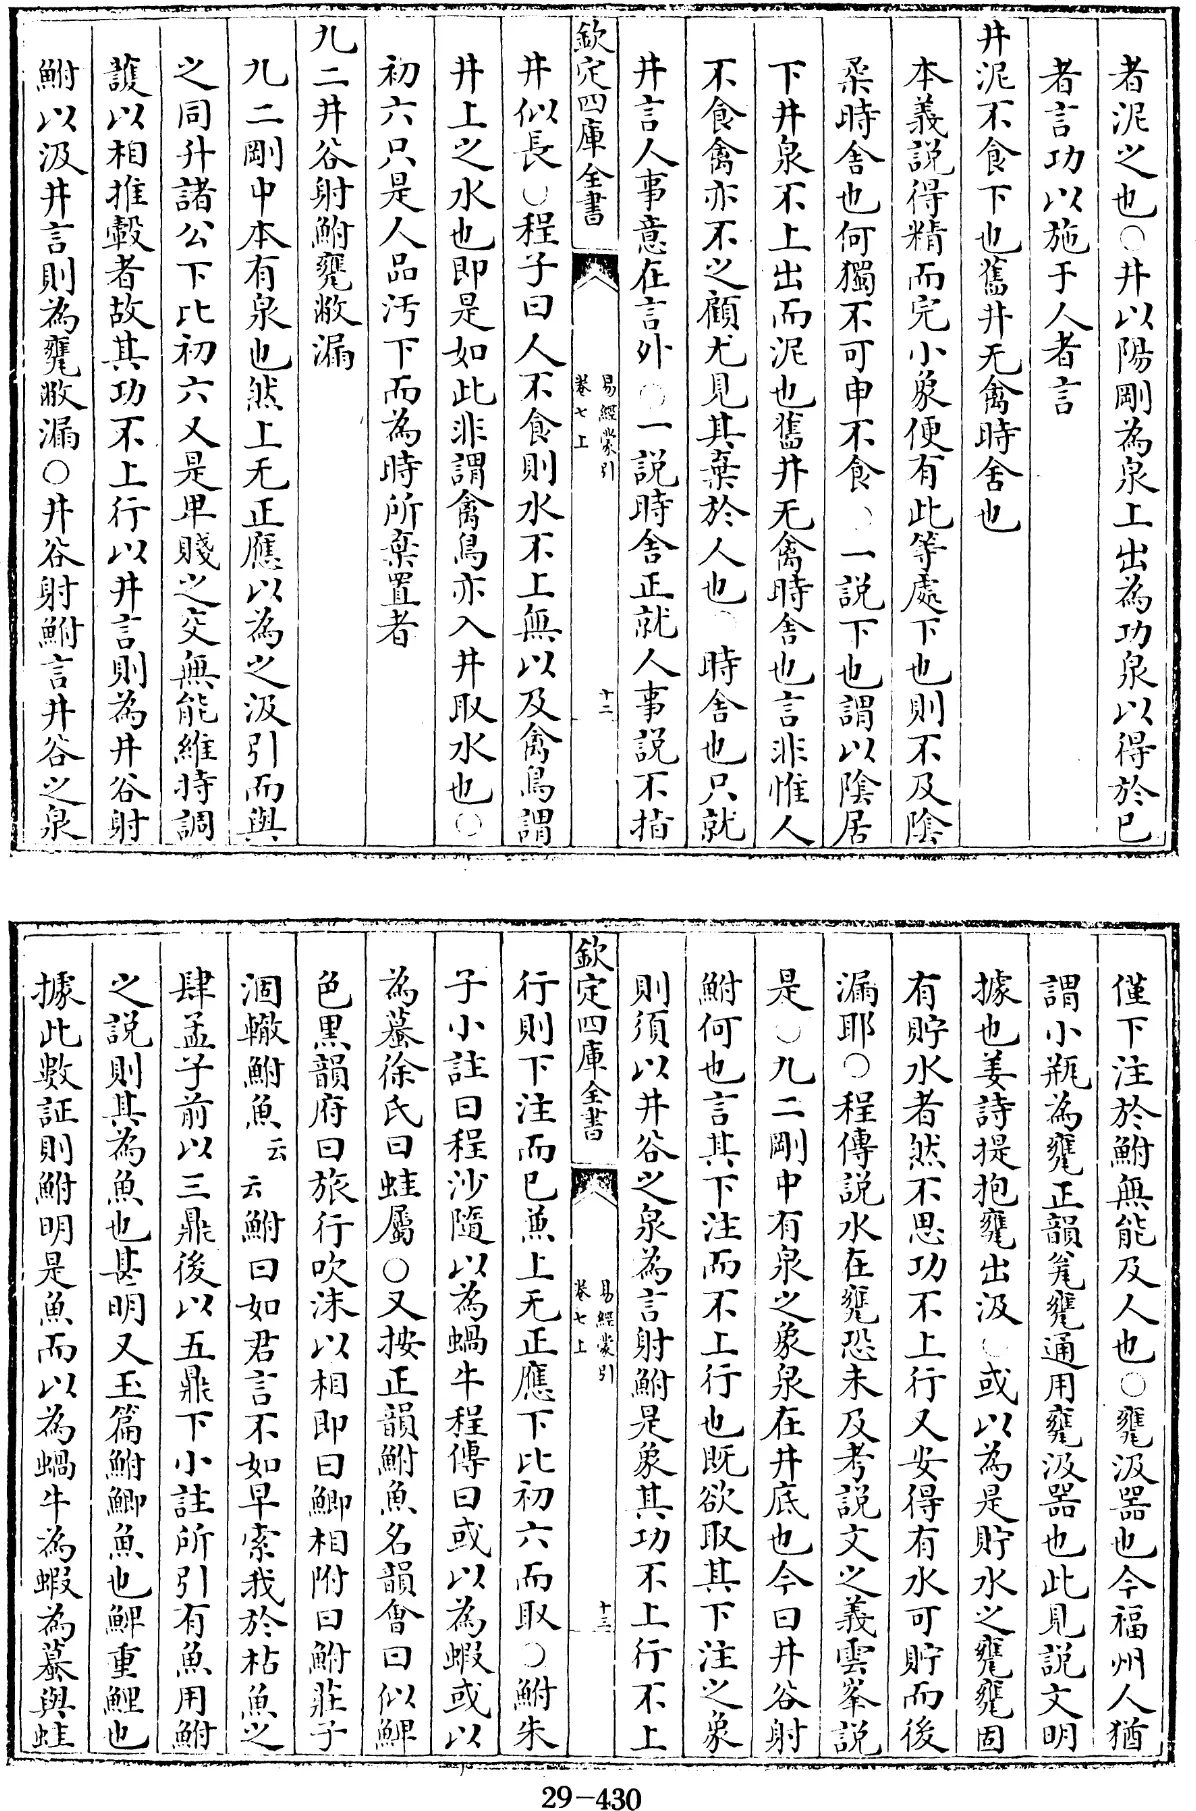 者泥之也○井以陽剛為泉上出為功泉以得於已
者言功以施于人者言
井泥不食下也舊井无禽時舍也
本義説得精而完小象便有此等處下也則不及陰
柔時舍也何獨不可申不食○一説下也謂以陰居
下井泉不上出而泥也舊井无禽時舍也言非惟人
不食禽亦不之顧尤見其棄於人也○時舍也只就
井言人事意在言外○一説時舍正就人事説不指
欽定四庫全書
易經蒙引
卷七上
十二
井似長○程子曰人不食則水不上無以及禽鳥謂
井上之水也即是如此非謂禽鳥亦入井取水也○
初六只是人品汚下而為時所棄置者
九二井谷射鮒甕敝漏
九二剛中本有泉也然上无正應以為之汲引而與
之同升諸公下比初六又是卑賤之交無能維持調
護以相推轂者故其功不上行以井言則為井谷射
鮒以汲井言則為甕敝漏○井谷射鮒言井谷之泉
僅下注於鮒無能及人也○甕汲器也今福州人猶
謂小瓶為甕正韻瓮甕通用甕汲器也此見説文明
據也姜詩提抱甕出汲○或以為是貯水之甕甕固
有貯水者然不思功不上行又安得有水可貯而後
漏耶○程傳説水在甕恐未及考説文之義雲峯説
是○九二剛中有泉之象泉在井底也今曰井谷射
鮒何也言其下注而不上行也既欲取其下注之象
則須以井谷之泉為言射鮒是象其功不上行不上
欽定四庫全書
易經蒙引
卷七上
十三
行則下注而已兼上无正應下比初六而取○鮒朱
子小註曰程沙隨以為蝸牛程傳曰或以為蝦或以
為蟇徐氏曰蛙屬○又按正韻鮒魚名韻會曰似鯶
色黒韻府曰旅行吹沫以相即曰鯽相附曰鮒莊子
涸轍鮒魚云云鮒曰如君言不如早索我於枯魚之
肆孟子前以三鼎後以五鼎下小註所引有魚用鮒
之説則其為魚也甚明又玉篇鮒鯽魚也鯶重鯉也
據此數証則鮒明是魚而以為蝸牛為蝦為蟇與蛙
29-430